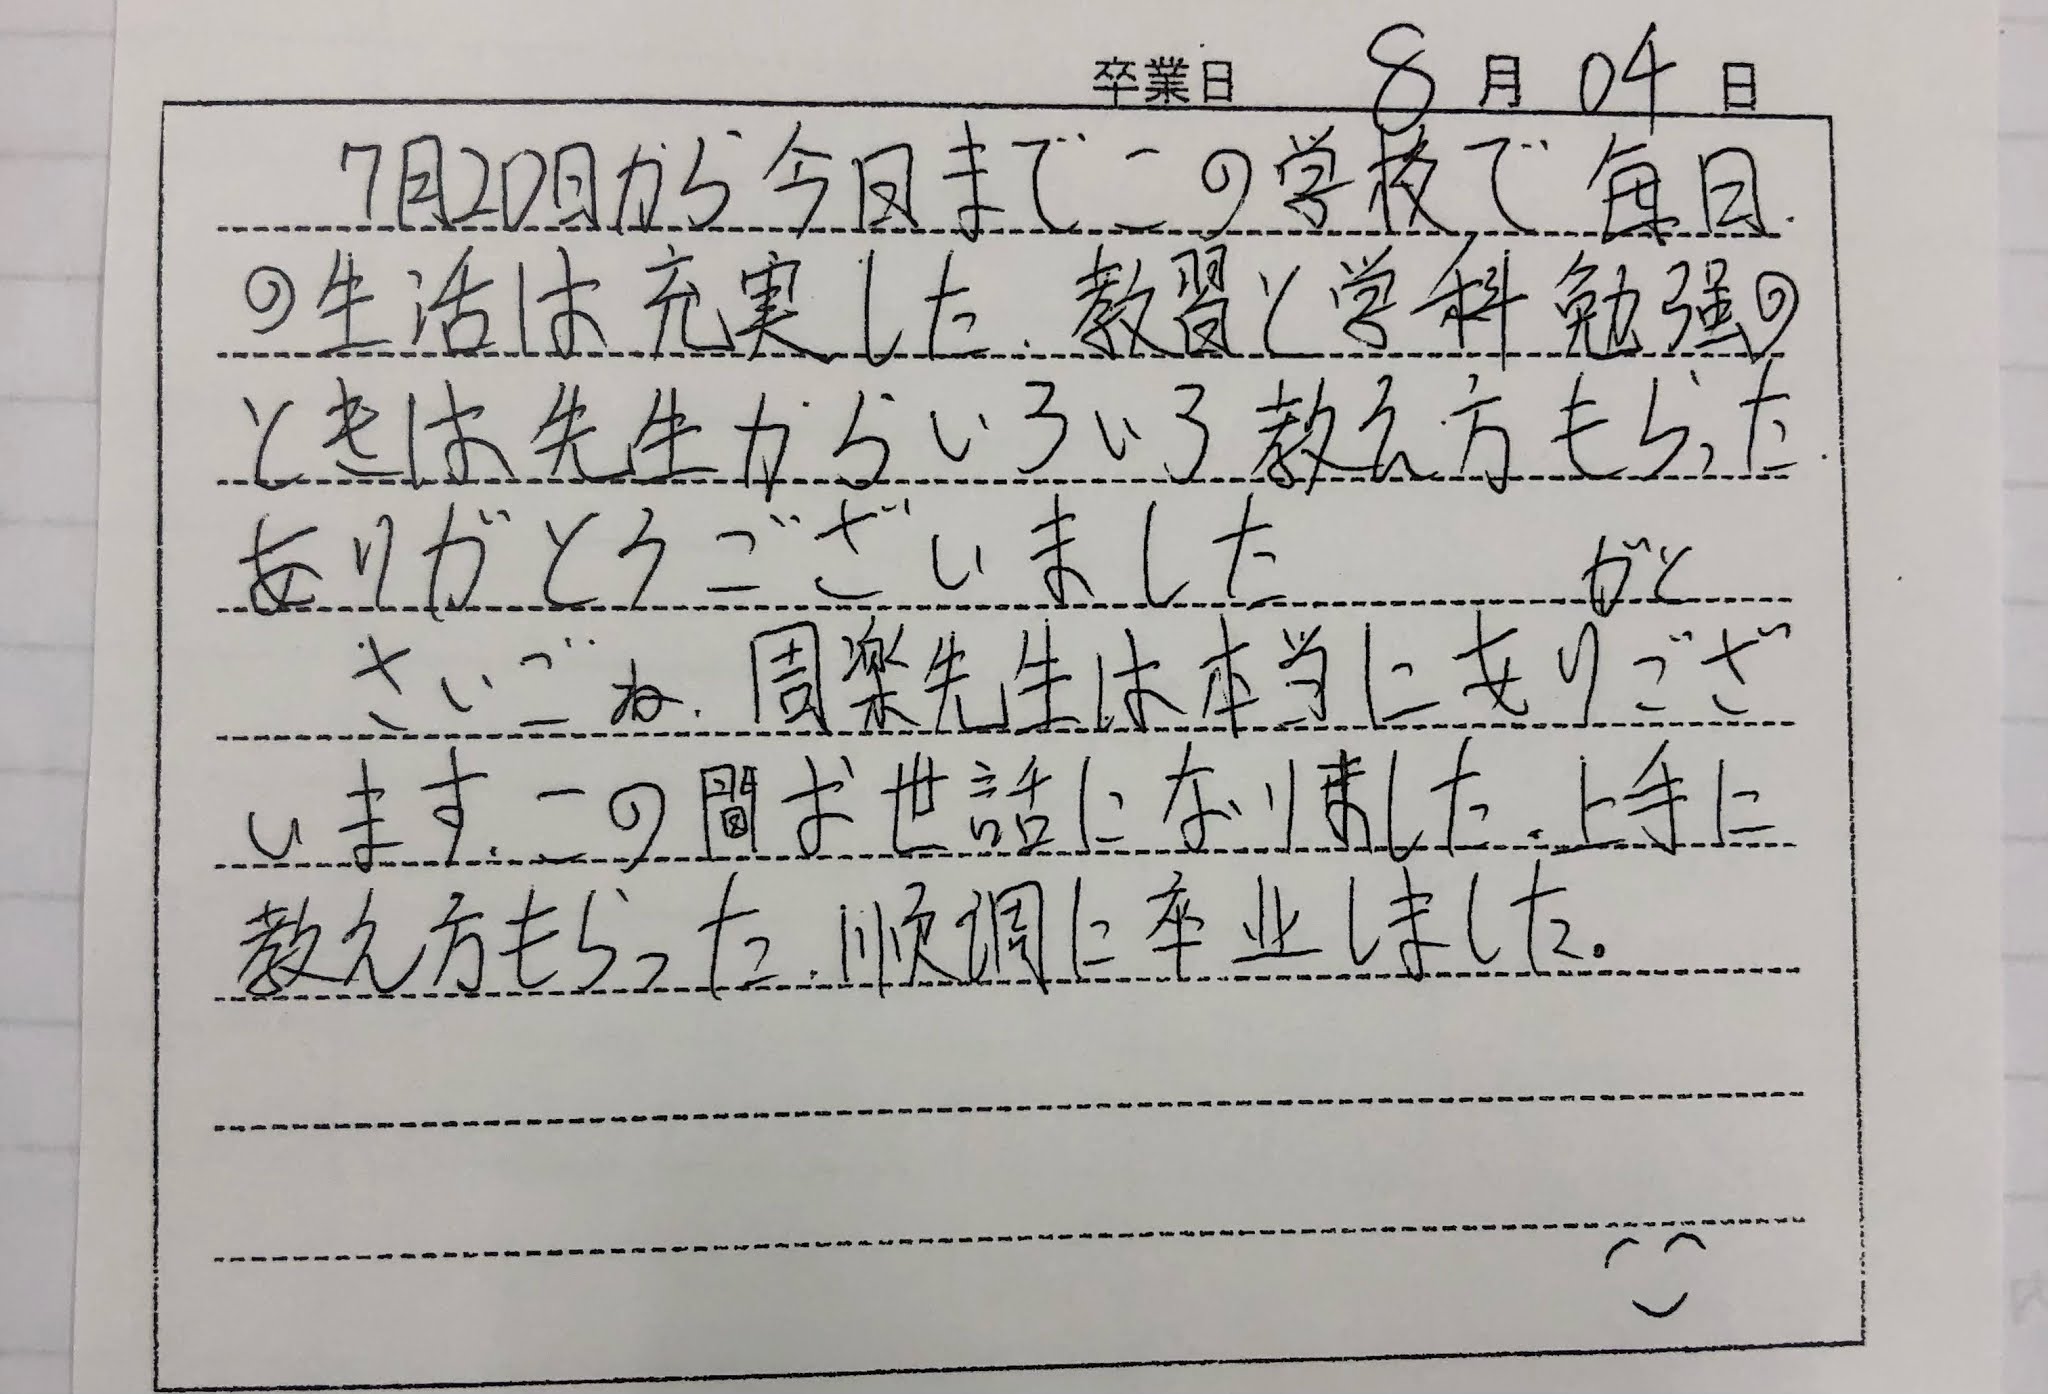 卒業日 8月04日
7月20日から今日までこの学校で毎日.
の生活は充実した.教習と学科勉強の
ときは先生からいろいろ教え方もらった.
ありがとうございました
がと
さいごね.周楽先生は本当にありござ
います.この間お世話になりました.上手に
教え方もらった.順調に卒业しました。